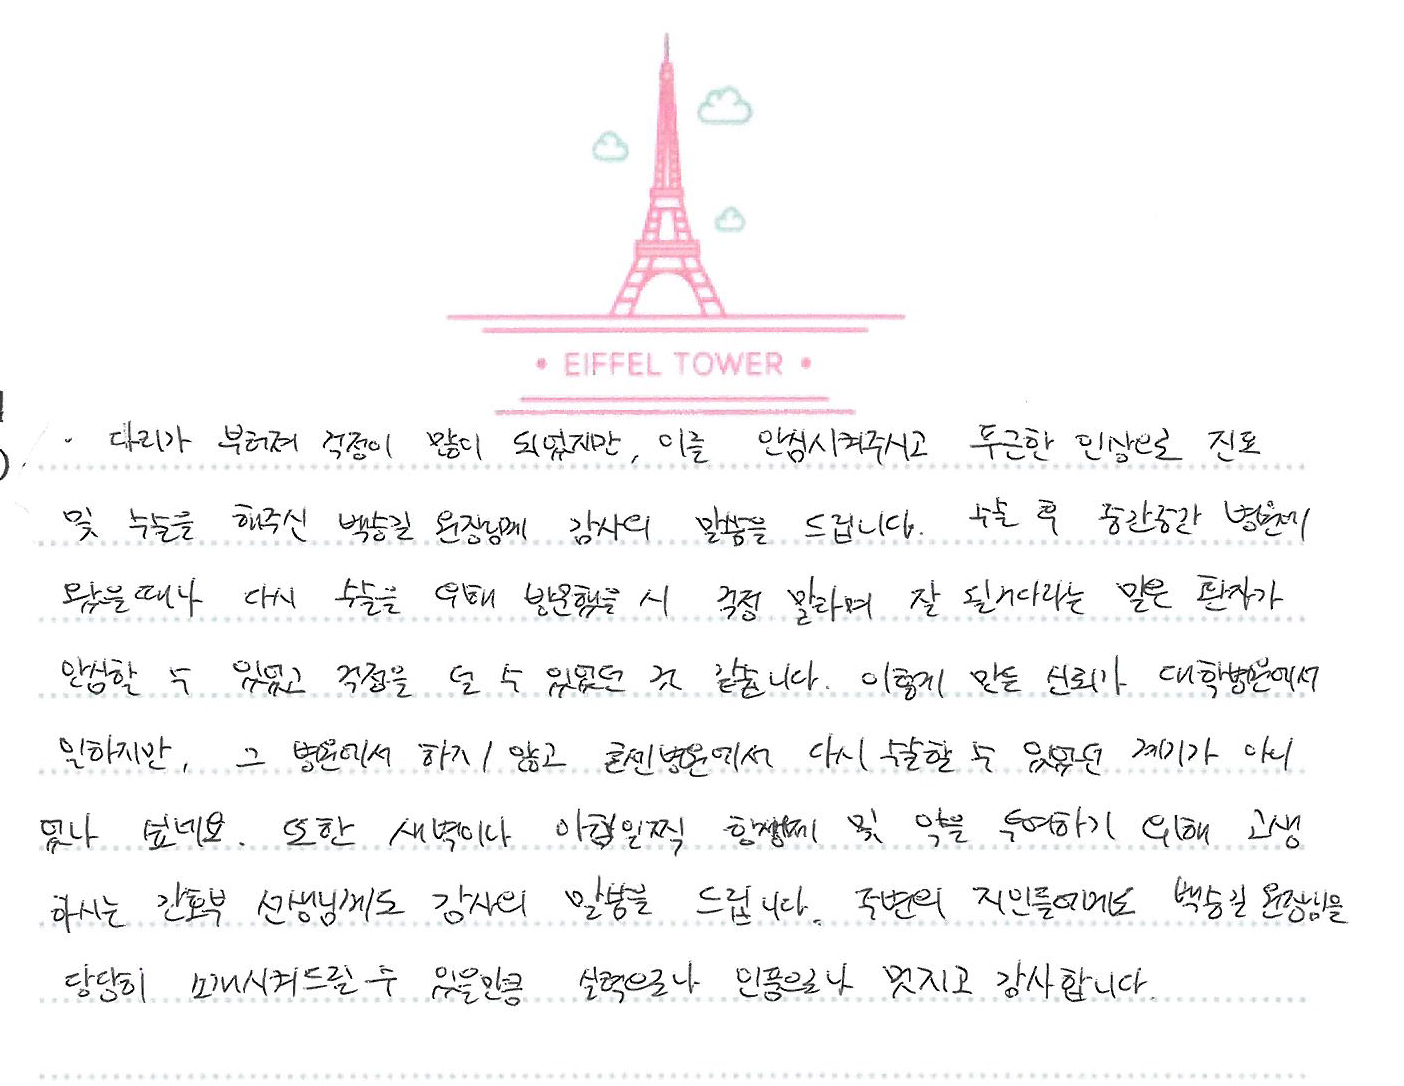 • EIFFEL TOWER •
· 다리가 부러져 걱정이 많이 되었지만, 이를 안심시켜주시고 푸근한 인상으로 진료
및 수술을 해주신 백승길 원장님께 감사의 말씀을 드립니다. 수술 후 중간중간 병원에
왔을때나 다시 수술을 위해 방문했을 시 걱정 말라며 잘 될거다라는 말은 환자가
안심할 수 있었고 걱정을 덜 수 있었던 것 같습니다. 이렇게 만든 신뢰가 대학병원에서
일하지만, 그 병원에서 하지 않고 굳센병원에서 다시 수술할 수 있었던 계기가 아니
었나 싶네요. 또한 새벽이나 아침일찍 항생제 및 약을 투여하기 위해 고생
하시는 간호부 선생님께도 감사의 말씀을 드립니다. 주변의 지인들에게도 백승길 원장님을
당당히 소개시켜드릴 수 있을만큼 실력으로나 인품으로나 멋지고 감사합니다.